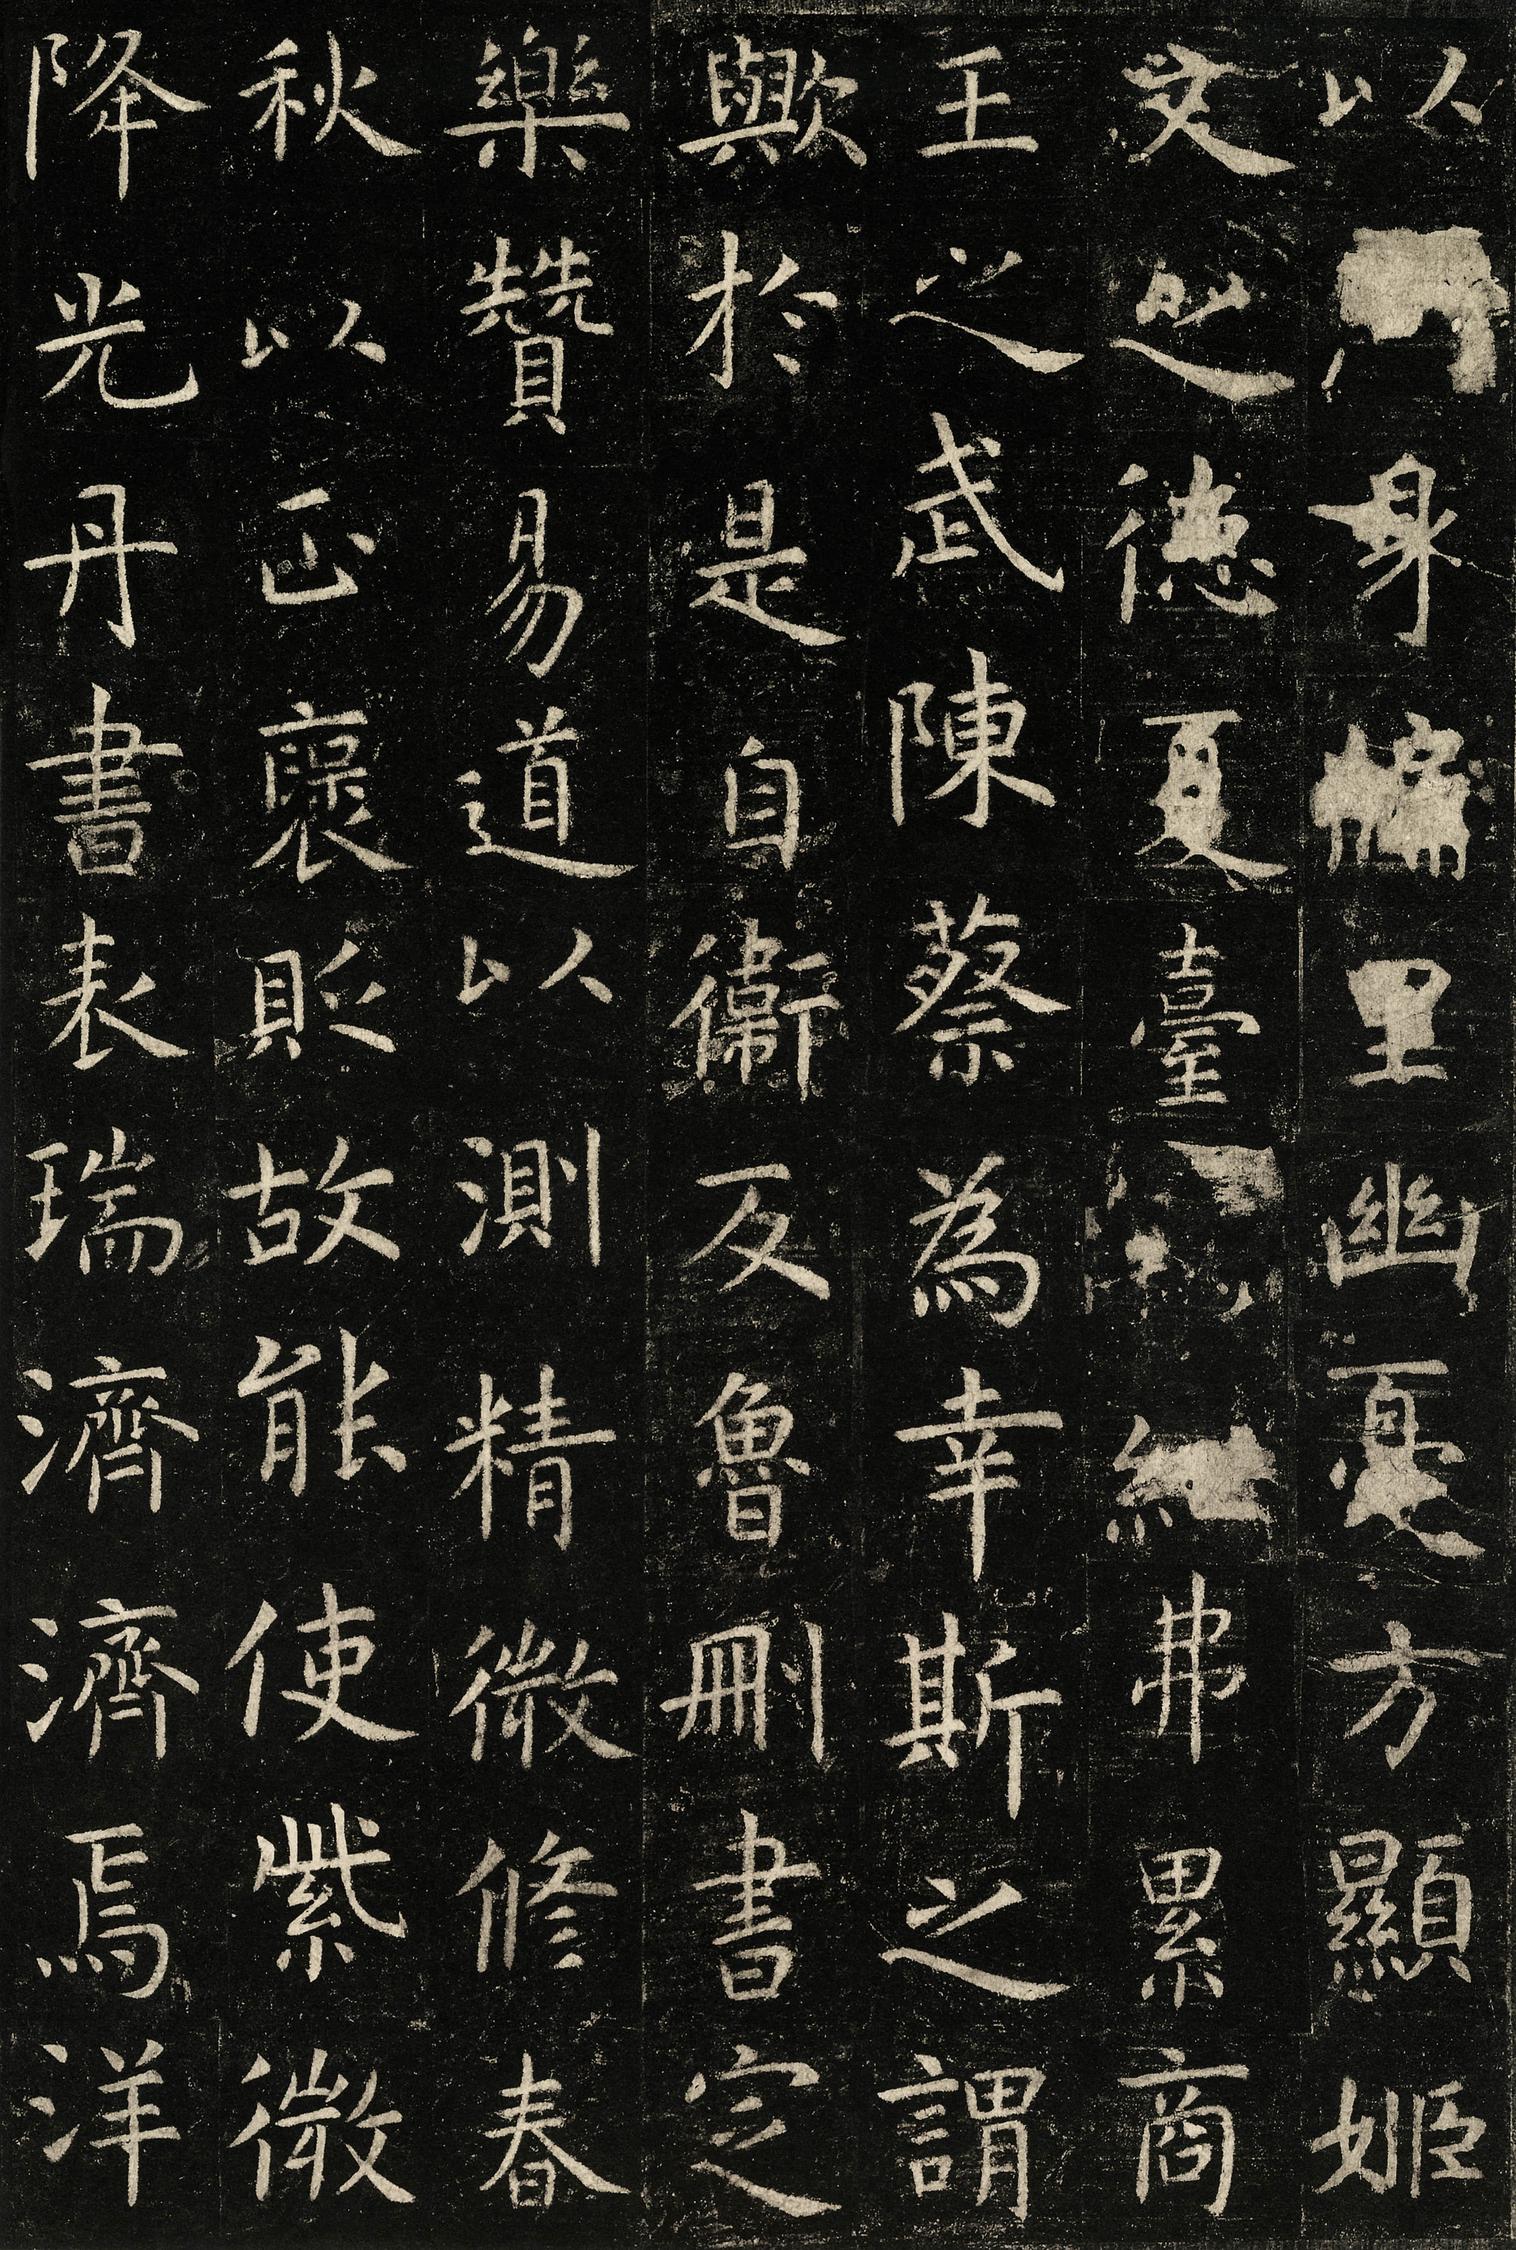 以身牖里幽憂方顯姬
文之德夏臺紲弗累商
王之武陳蔡為幸斯之謂
歟於是自衛反魯刪書定
樂贊易道以測精微修春
秋以正褒貶故能使紫微
降光丹書表瑞濟濟焉洋